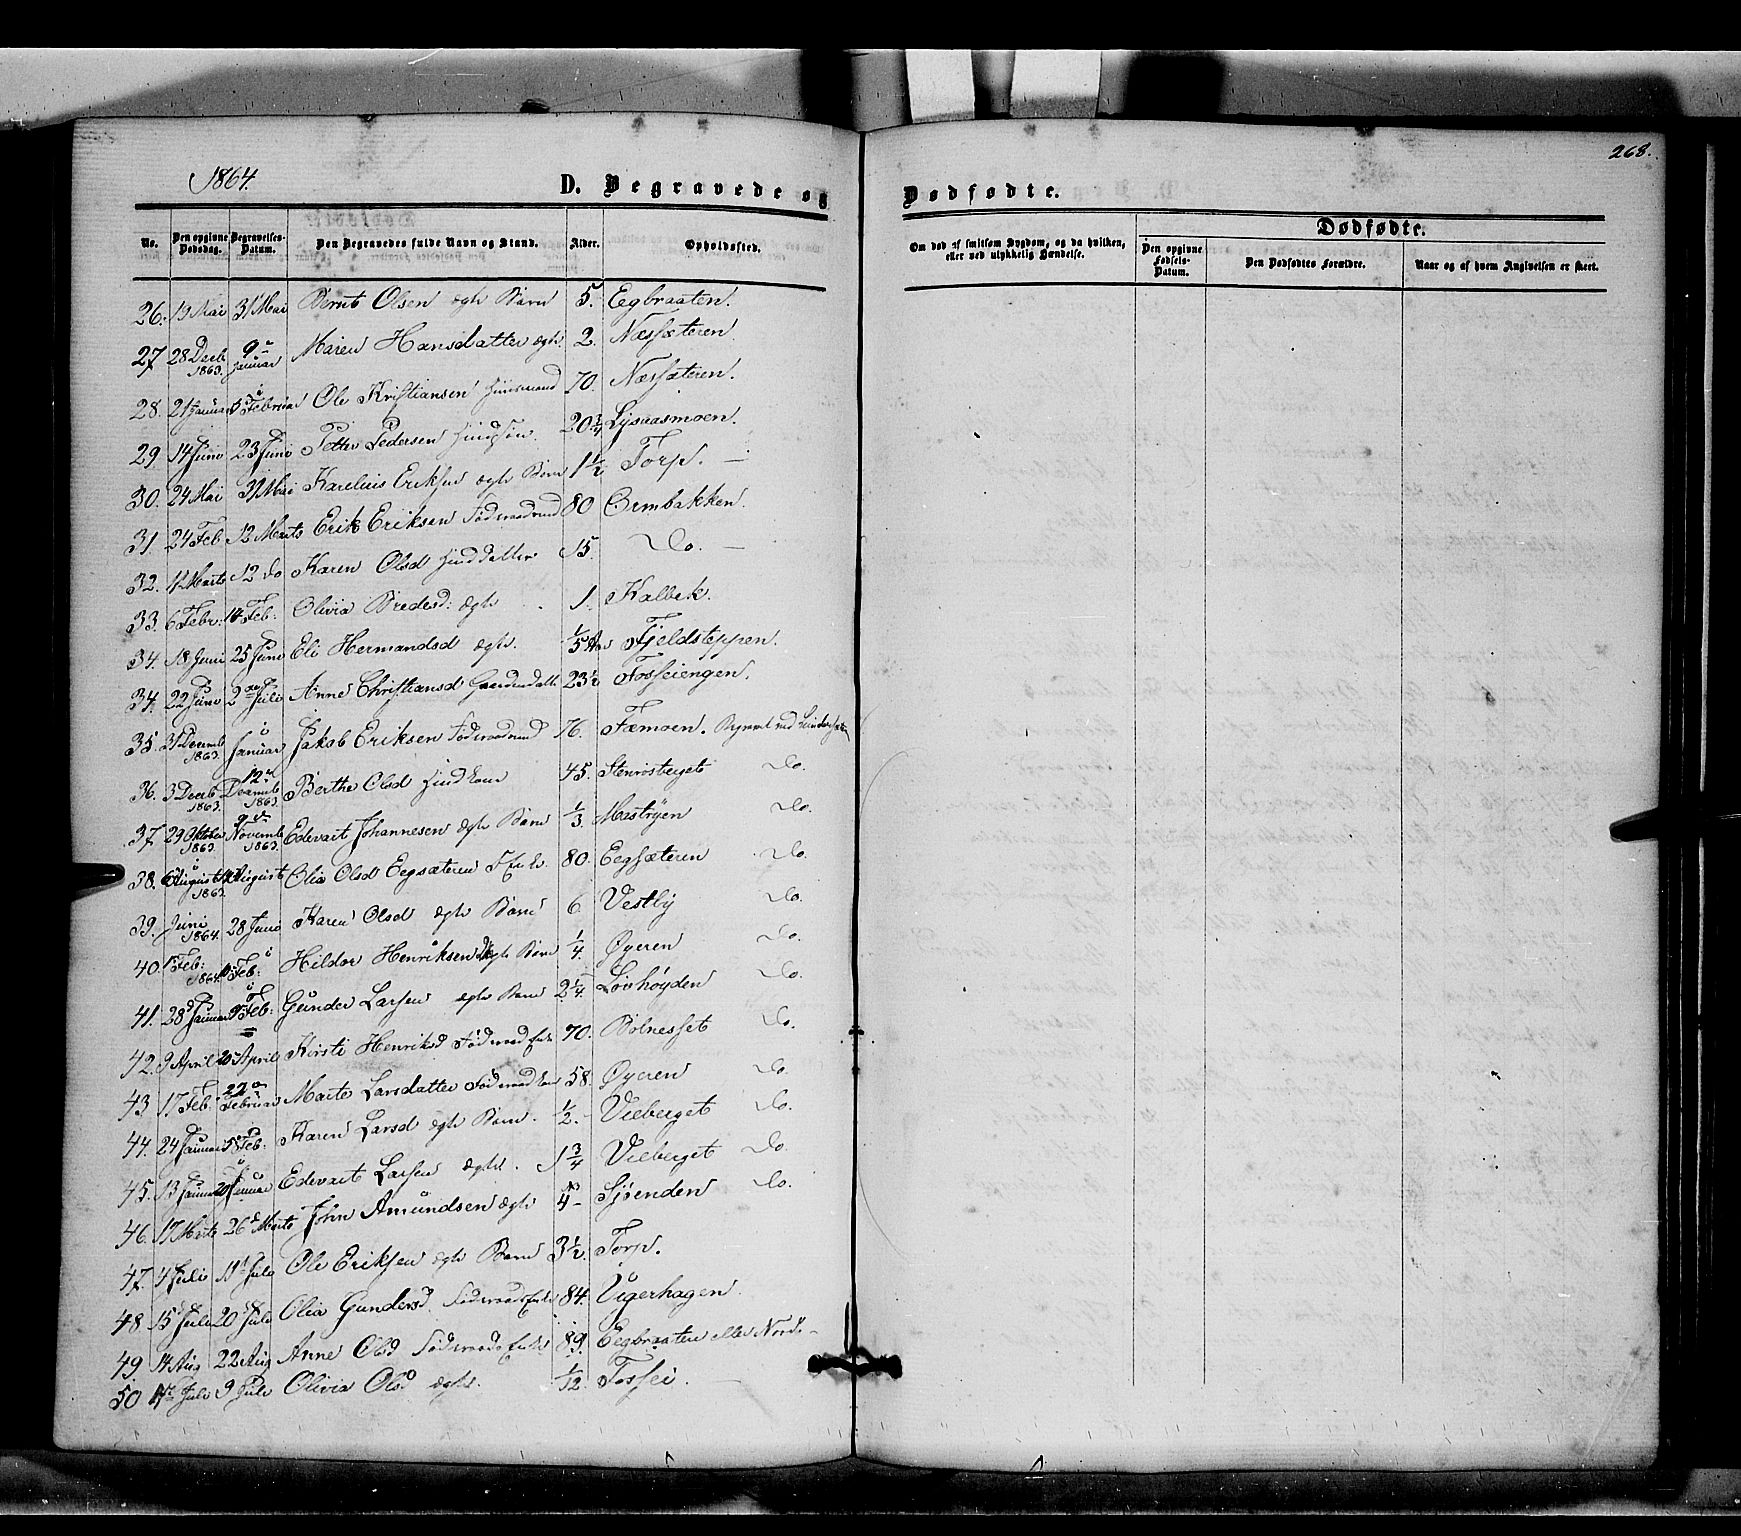 268.
1864.
D. Begravede og Dødfødte.
No. Den opgivne Dødsdag. Begravelses-Datum. Den Begravedes fulde Navn og Stand. Alder. Opholdssted. Om død af smitsom Sygdom, og da hvilken, eller ved ulykkelig Hændelse. Dødfødte. Den opgivne Fødsels-Datum. Den Dødfødtes Forældre. Naar og af hvem Angivelsen er skeet.
26. 19 Mai 31 Mai Bernt Olsen ægte Barn 5. Eegbraaten.
27 28 Decb 1863. 9 Januar Maren Hansdatter ægte 2. Næssæteren
28. 21 Januar 5 Februar Ole Kristiansen Huusmand 70. Næssæteren.
29 14 Juni 23 Juni Petter Pedersen 20 3/4 Lysaasmoen.
30. 24 Mai 31 Mai Karelius Eriksen ægte Barn 1 1/2 Torp. —
31 24 Feb 12 Marts Erik Eriksen Føderaadmd 80 Ormbakken.
32. 11 Marts 12 do Karen Olsd 15. Do. —
33. 6 Febr: 14 Feb: Olivia Bredesd: ægte 1. Kalbek.
34. 18 Juni 25 Juni Eli Hermandsd ægte. 1/5 Fjeldsteppen.
34. 22 Juni 2 Juli Anne Christiansd Gaardmdatter 23 1/2 Fosseiengen.
35. 31 Decemb 1863 Januar Jakob Eriksen Føderaadmd 76. Fæmoen.
36. 3 Decb 1863. 12 Decemb 1863. Berthe Olsd 45. Stenrosberget Do.
37. 29 Oktober 1863 9 Novemb 1863. Edevart Johannesen ægte Barn 1/3. Mastrøyen Do.
38. 6 August 1863. August Olia Olsd Eegsæteren 80. Eegsæteren Do.
39. Juni 1864. 28 Juni Karen Olsd ægte Barn 6. Vestby Do.
40. 1 Feb: 1864. Feb: Hildor Henriksen ægte Barn 1/4. Øyeren Do.
41. 28 Januar 9 Feb: Gunder Larsen ægte Barn 2 1/4. Lovhøyden Do.
42. 9 April 20 April Kirsti Henriksd Føderaads Enke 70. Bolnesset Do.
43 17 Feb. 22 Februar Marte Larsdatter Føderaadkone 58. Øyeren Do.
44. 24 Januar 5 Feb: Karen Larsd ægte Barn. 1/2. Vieberget Do.
45. 13 Januar 20 Januar Edevart Larsen ægte. 1 3/4 Vieberget Do.
46. 17 Marts 26 Marts John Amundsen ægte 4 Sjøenden Do.
47. 4 Juli 11 Juli Ole Eriksen ægte Barn 3 1/2. Torp.
48 15 Juli 20 Juli Olia Gundersd. Føderaads Enke 84. Vigerhagen.
49. 14 Aug 22 Aug Anne Olsd Føderaads Enke 89. Eegbraaten eller Nord. —
50 Juli 9 Juli Olivia Olsd ægte. 1/12. Fossei. —